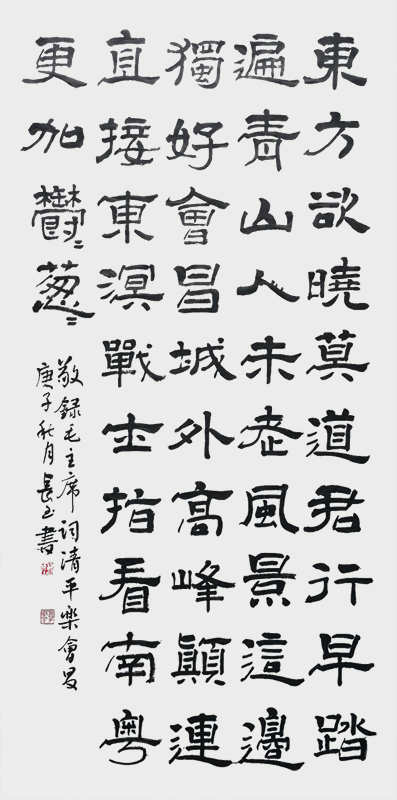 東方欲曉莫道君行早踏
遍青山人未老風景這邊
獨好會昌城外高峰顛連
直接東溟戰士指看南粤
更加鬱〻葱〻
敬録毛主席詞清平樂會昌
庚子秋月長書